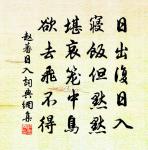 日出復日入
寢飯但黙黙
堪哀籠中鳥
欲去飛不得
趙蕃日入詞典網集